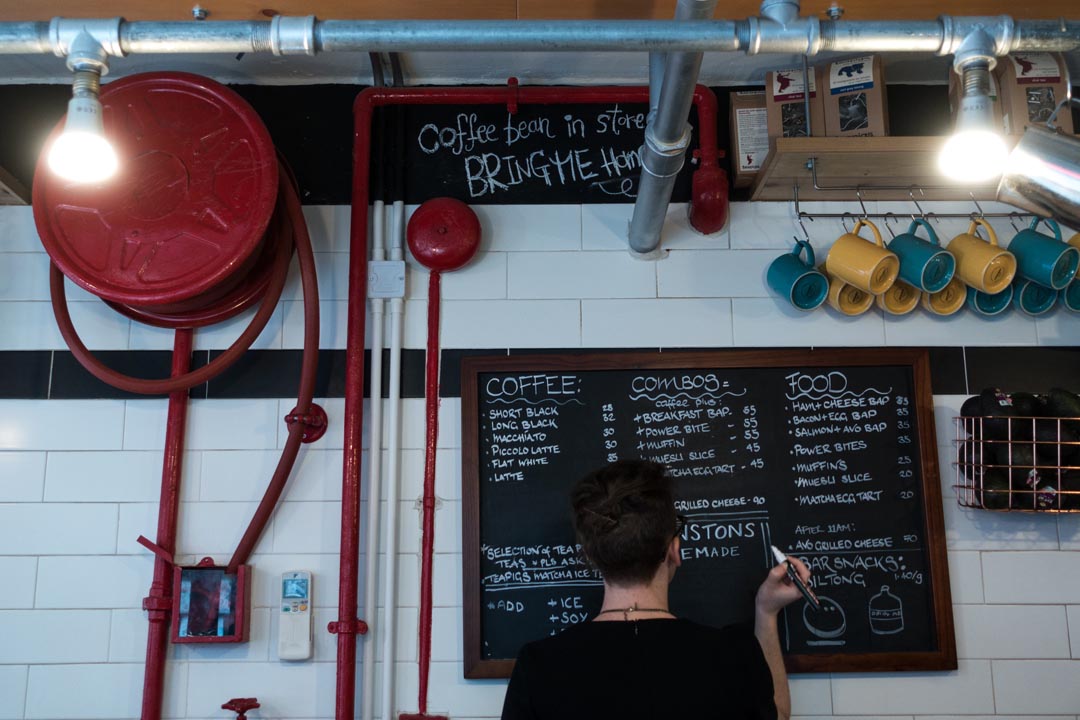 Coffee bean in store
BRING ME Home
COFFEE:
• SHORT BLACK 28
• LONG BLACK 32
• MACCHIATO 30
• PICCOLO LATTE 30
• FLAT WHITE 35
• LATTE
*SELECTION OF TEA
TEAS * PLS ASK
*TEAPIGS MATCHA ICE TE
*ADD + ICE
+ SOY
COMBOS
coffee plus:
+ BREAKFAST BAP - 65
+ POWER BITE - 55
+ MUFFIN - 55
+ MUESLI SLICE - 45
MATCHA EGG TART - 45
GRILLED CHEESE - 90
NSTONS
EMADE
FOOD
• HAM + CHEESE BAP 35
• BACON + EGG BAP 35
• SALMON + AVO BAP 35
• POWER BITES 35
• MUFFINS 25
• MUESLI SLICE 20
• MATCHA EGG TART 20
AFTER 11AM:
• AVO GRILLED CHEESE 70
BAR SNACKS:
BILTONG 1.40/g